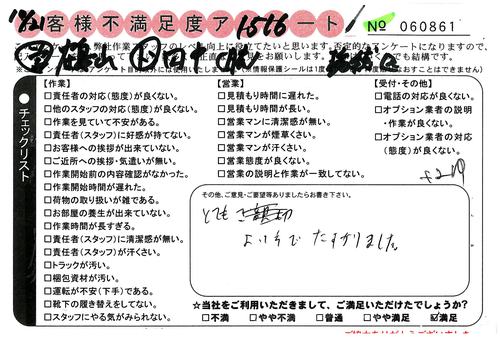 10/21 お客様不満足度アンケート 1516 № 060861
【作業】
□責任者の対応(態度)が良くない。
□他のスタッフの対応(態度)が良くない。
□作業を見ていて不安がある。
□責任者(スタッフ)に好感が持てない。
□お客様への挨拶が出来ていない。
□ご近所への挨拶・気遣いが無い。
□作業開始前の内容確認がなかった。
□作業開始時間が遅れた。
□荷物の取り扱いが雑である。
□お部屋の養生が出来ていない。
□作業時間が長すぎる。
□責任者(スタッフ)に清潔感が無い。
□責任者(スタッフ)が汗くさい。
□トラックが汚い。
□梱包資材が汚い。
□運転が不安(下手)である。
□靴下の履き替えをしてない。
□スタッフにやる気がみられない。
【営業】
□見積もり時間に遅れた。
□見積もり時間が長い。
□営業マンに清潔感が無い。
□営業マンが煙草くさい。
□営業マンが汗くさい。
□営業態度が良くない。
□営業の説明と作業が一致してない。
【受付・その他】
□電話の対応が良くない。
□オプション業者の説明・作業が良くない。
□オプション業者の対応(態度)が良くない。
チェックリスト
その他、ご意見・ご要望等ありましたらお書き下さい。
とても
たすかりました。
☆当社をご利用いただきまして、ご満足いただけたでしょうか?
□不満 □やや不満 □普通 □やや満足 ☑満足